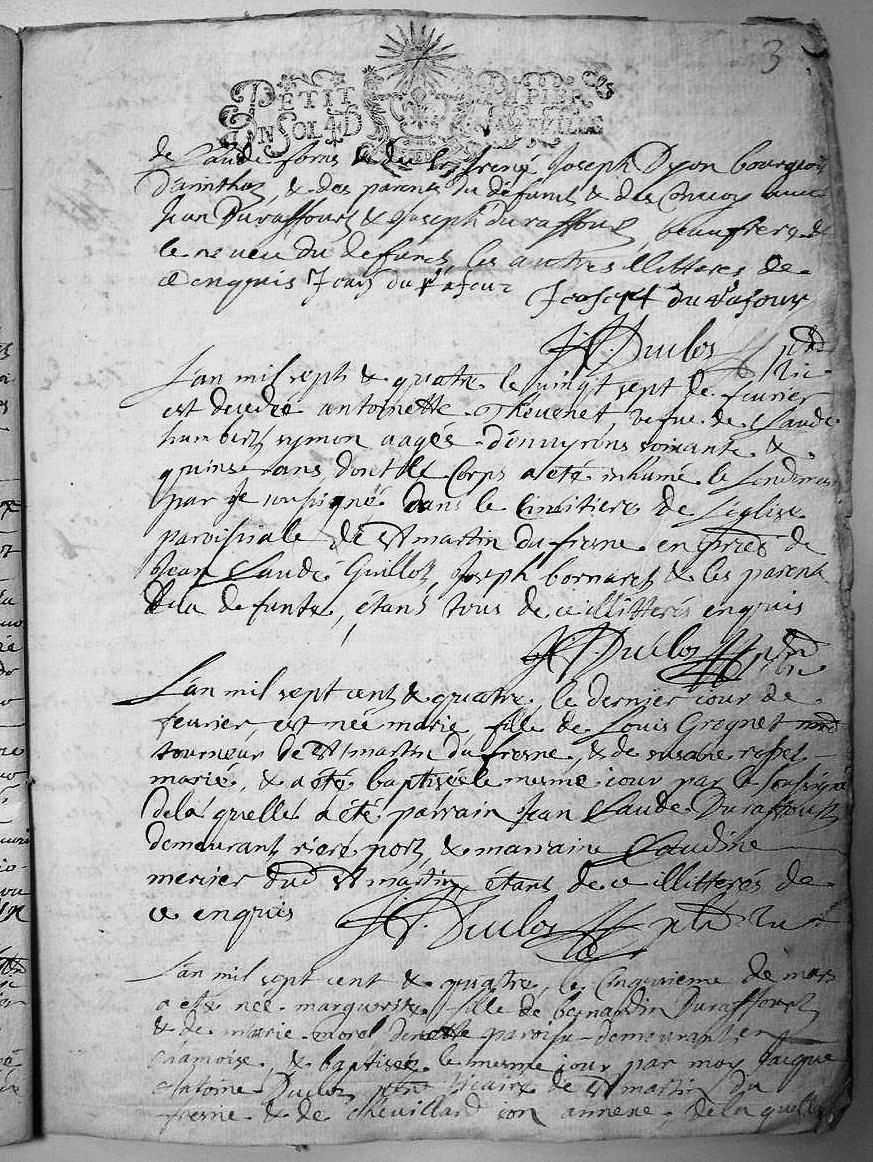 3
PETIT PAPIER
UN SOL 4 D
de Claude & du Sr Joseph Dyon bourgeois
D'arinthoz, & des parents du défunt &
Jean Duraffourt & Joseph duraffourt, beaufrere &
le neveu du defunct, les autres illitteres de
ce enquis Joseph durafour
Duclos
L'an mil sept & quatre le vingt sept de fevrier
est decedée antoinette Thevenet, vefve de Claude
humbert symon aagée d'environs soixante &
quinse ans, dont le Corps a été inhumé le lendemain
par Je soussigné dans le Cimitiere de L'eglise
paroissiale de St martin du fresne en presēs de
Jean Claude Guillot, Joseph bornarel & les parents
de la defunte, étans tous de ce illitterés enquis
Duclos
L'an mil sept cent & quatre, le dernier jour de
fevrier, est née marie fille de Louis Grognet
tourneur de St martin du fresne, & de susane
marie, & a été baptisée le mesme jour par le soussigné
de la quelle a été parrain Jean Claude Duraffourt
demeurant riere port, & marraine Claudine
mercier dud St martin, étant de ce illitterés de
ce enquis Duclos
L'an mil sept cent & quatre, le cinquieme de mars
a été née marguerite fille de bernardin Duraffourt
& de marie morel de paroisse demourant en
chamoise, & baptisée le mesme jour par moy Jacque
Antoine Duclos vicaire de St martin du
fresne & de chevillard son annexe, de la quelle